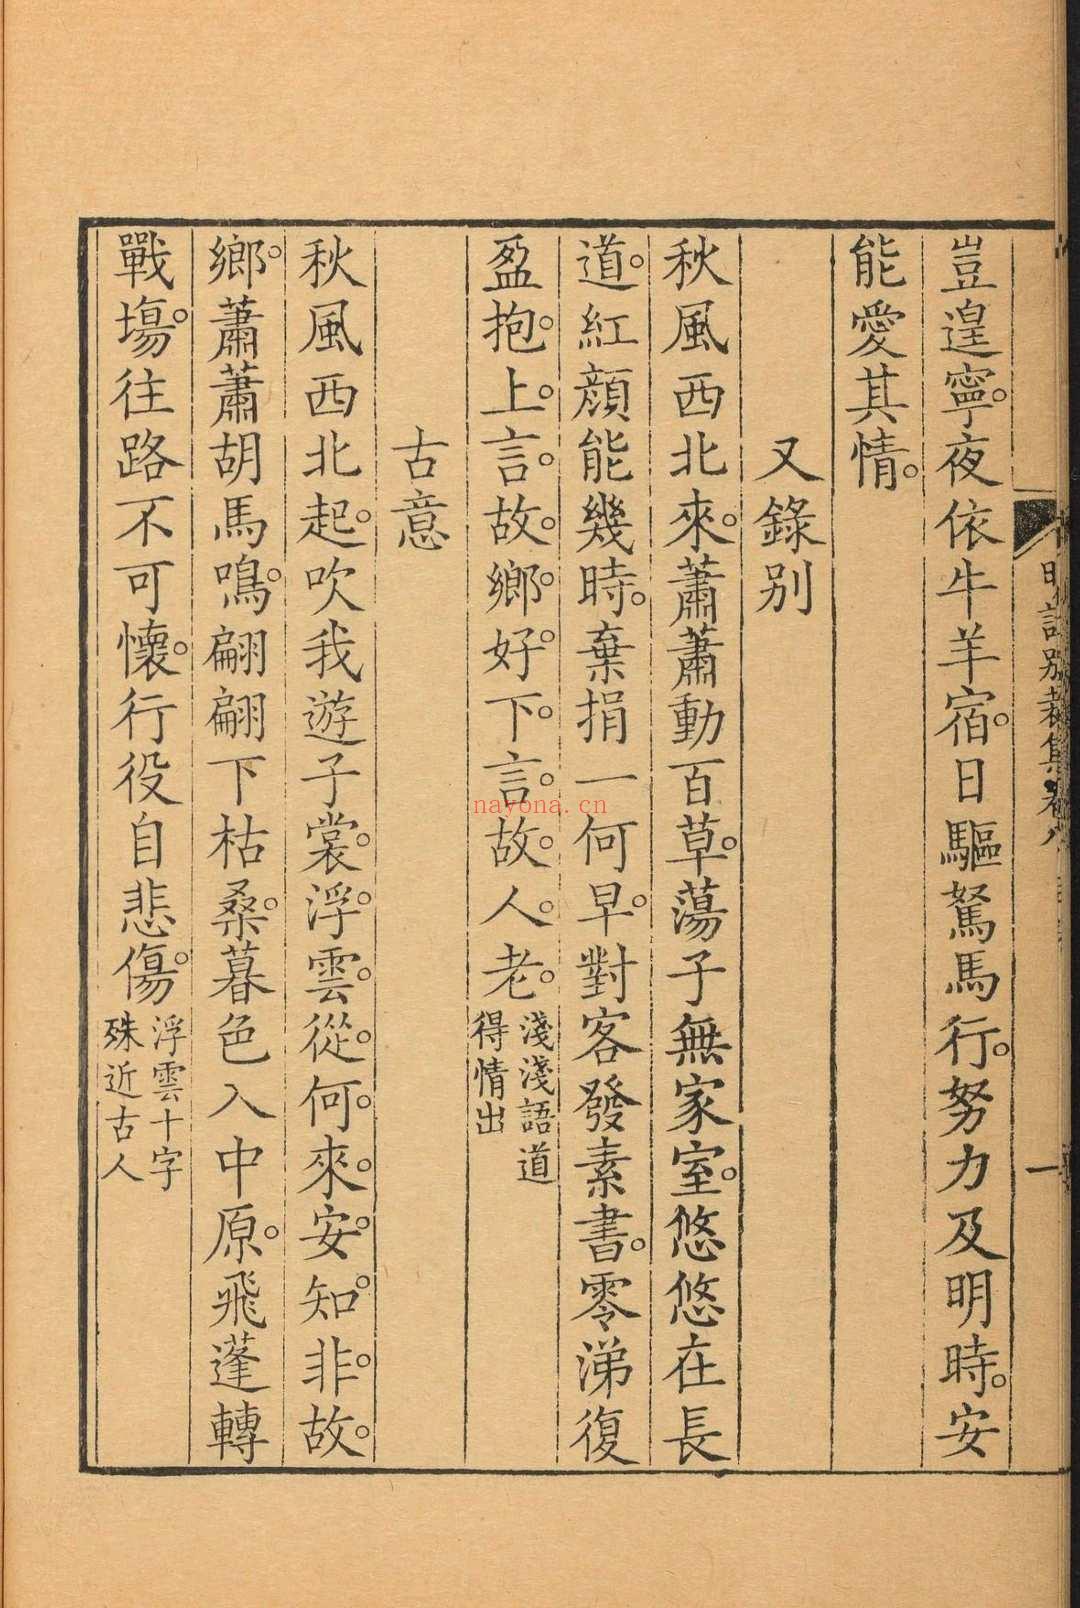 明詩別裁集
豈遑寧夜依牛羊宿日驅駑馬行努力及明時安
能愛其情
又錄别
秋風西北來蕭蕭動百草蕩子無家室悠悠在長
道紅顔能幾時棄捐一何早對客發素書零涕復
盈抱上言故鄉好下言故人老
淺淺語道
得情出
古意
秋風西北起吹我遊子裳浮雲從何來安知非故
鄉蕭蕭胡馬鳴翩翩下枯桑暮色入中原飛蓬轉
戰場往路不可懷行役自悲傷
浮雲十字
殊近古人
nayona.cn